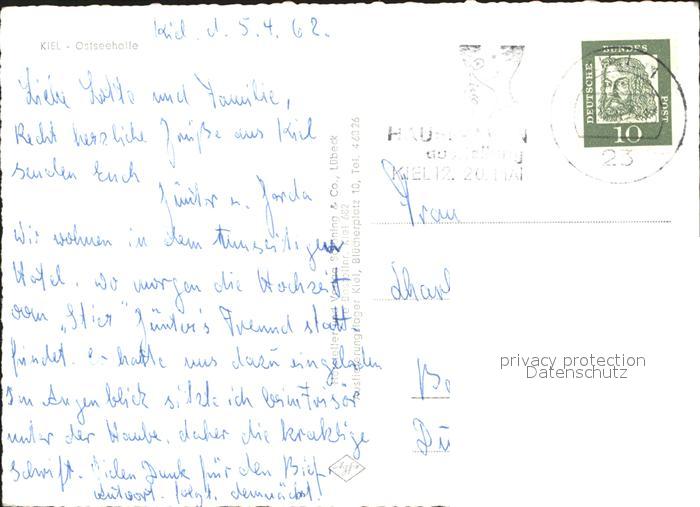 Kiel d. 5.4.62.
KIEL - Ostseehalle
Liebe Lotte und Familie,
Recht herzliche Grüße aus Kiel
senden Euch
Günter u. Gerda
Wir wohnen in dem
Hotel, wo morgen die Hochzeit
vom „Stier" Günter's Freund statt-
findet. Er hatte uns dazu eingeladen
Im Augenblick sitze ich beim Frisör
unter der Haube, daher die kraklige
Schrift. Vielen Dank für den Brief
Antwort folgt demnächst.
Verlag Schöning & Co., Lübeck
Kiel, Blücherplatz 10, Tel. 46026
KIEL 12. 20. MAI
DEUTSCHE BUNDESPOST
10
23
Frau
Charl
Be
Dü
privacy protection
Datenschutz